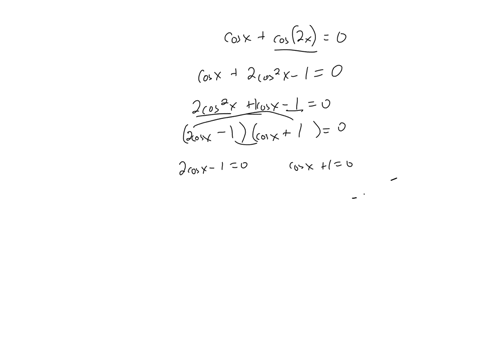 cosx + cos(2x) = 0
cosx + 2cos²x - 1 = 0
2cos²x + 1cosx - 1 = 0
(2cosx - 1)(cosx + 1) = 0
2cosx - 1 = 0 cosx + 1 = 0